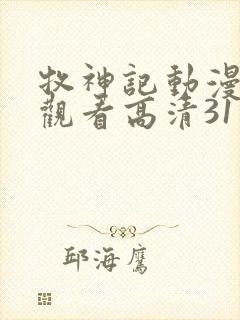 牧神記動漫
觀看高清31
邱海鷹